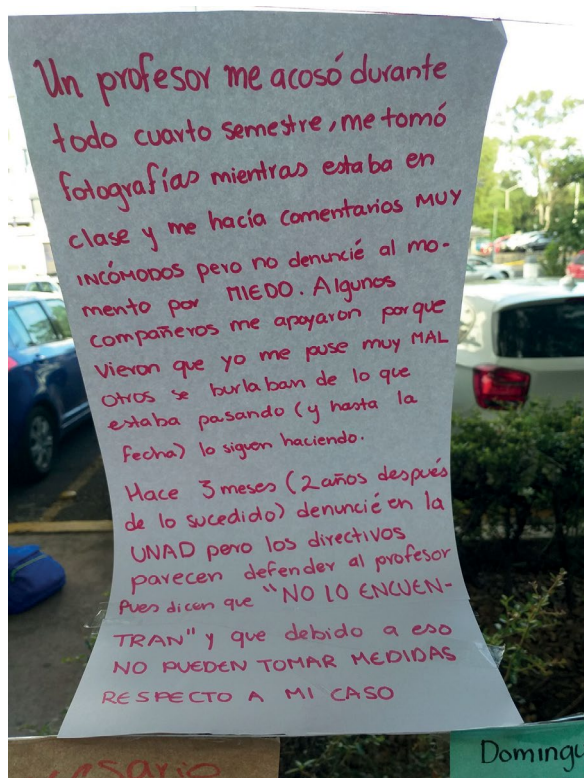 Un profesor me acosó durante
todo cuarto semestre, me tomó
fotografías mientras estaba en
clase y me hacía comentarios MUY
INCÓMODOS pero no denuncié al mo-
mento por MIEDO. Algunos
compañeros me apoyaron porque
vieron que yo me puse muy MAL
otros se burlaban de lo que
estaba pasando (y hasta la
fecha) lo siguen haciendo.
Hace 3 meses (2 años después
de lo sucedido) denuncié en la
UNAD pero los directivos
parecen defender al profesor
pues dicen que "NO LO ENCUEN-
TRAN" y que debido a eso
NO PUEDEN TOMAR MEDIDAS
RESPECTO A MI CASO
Doming